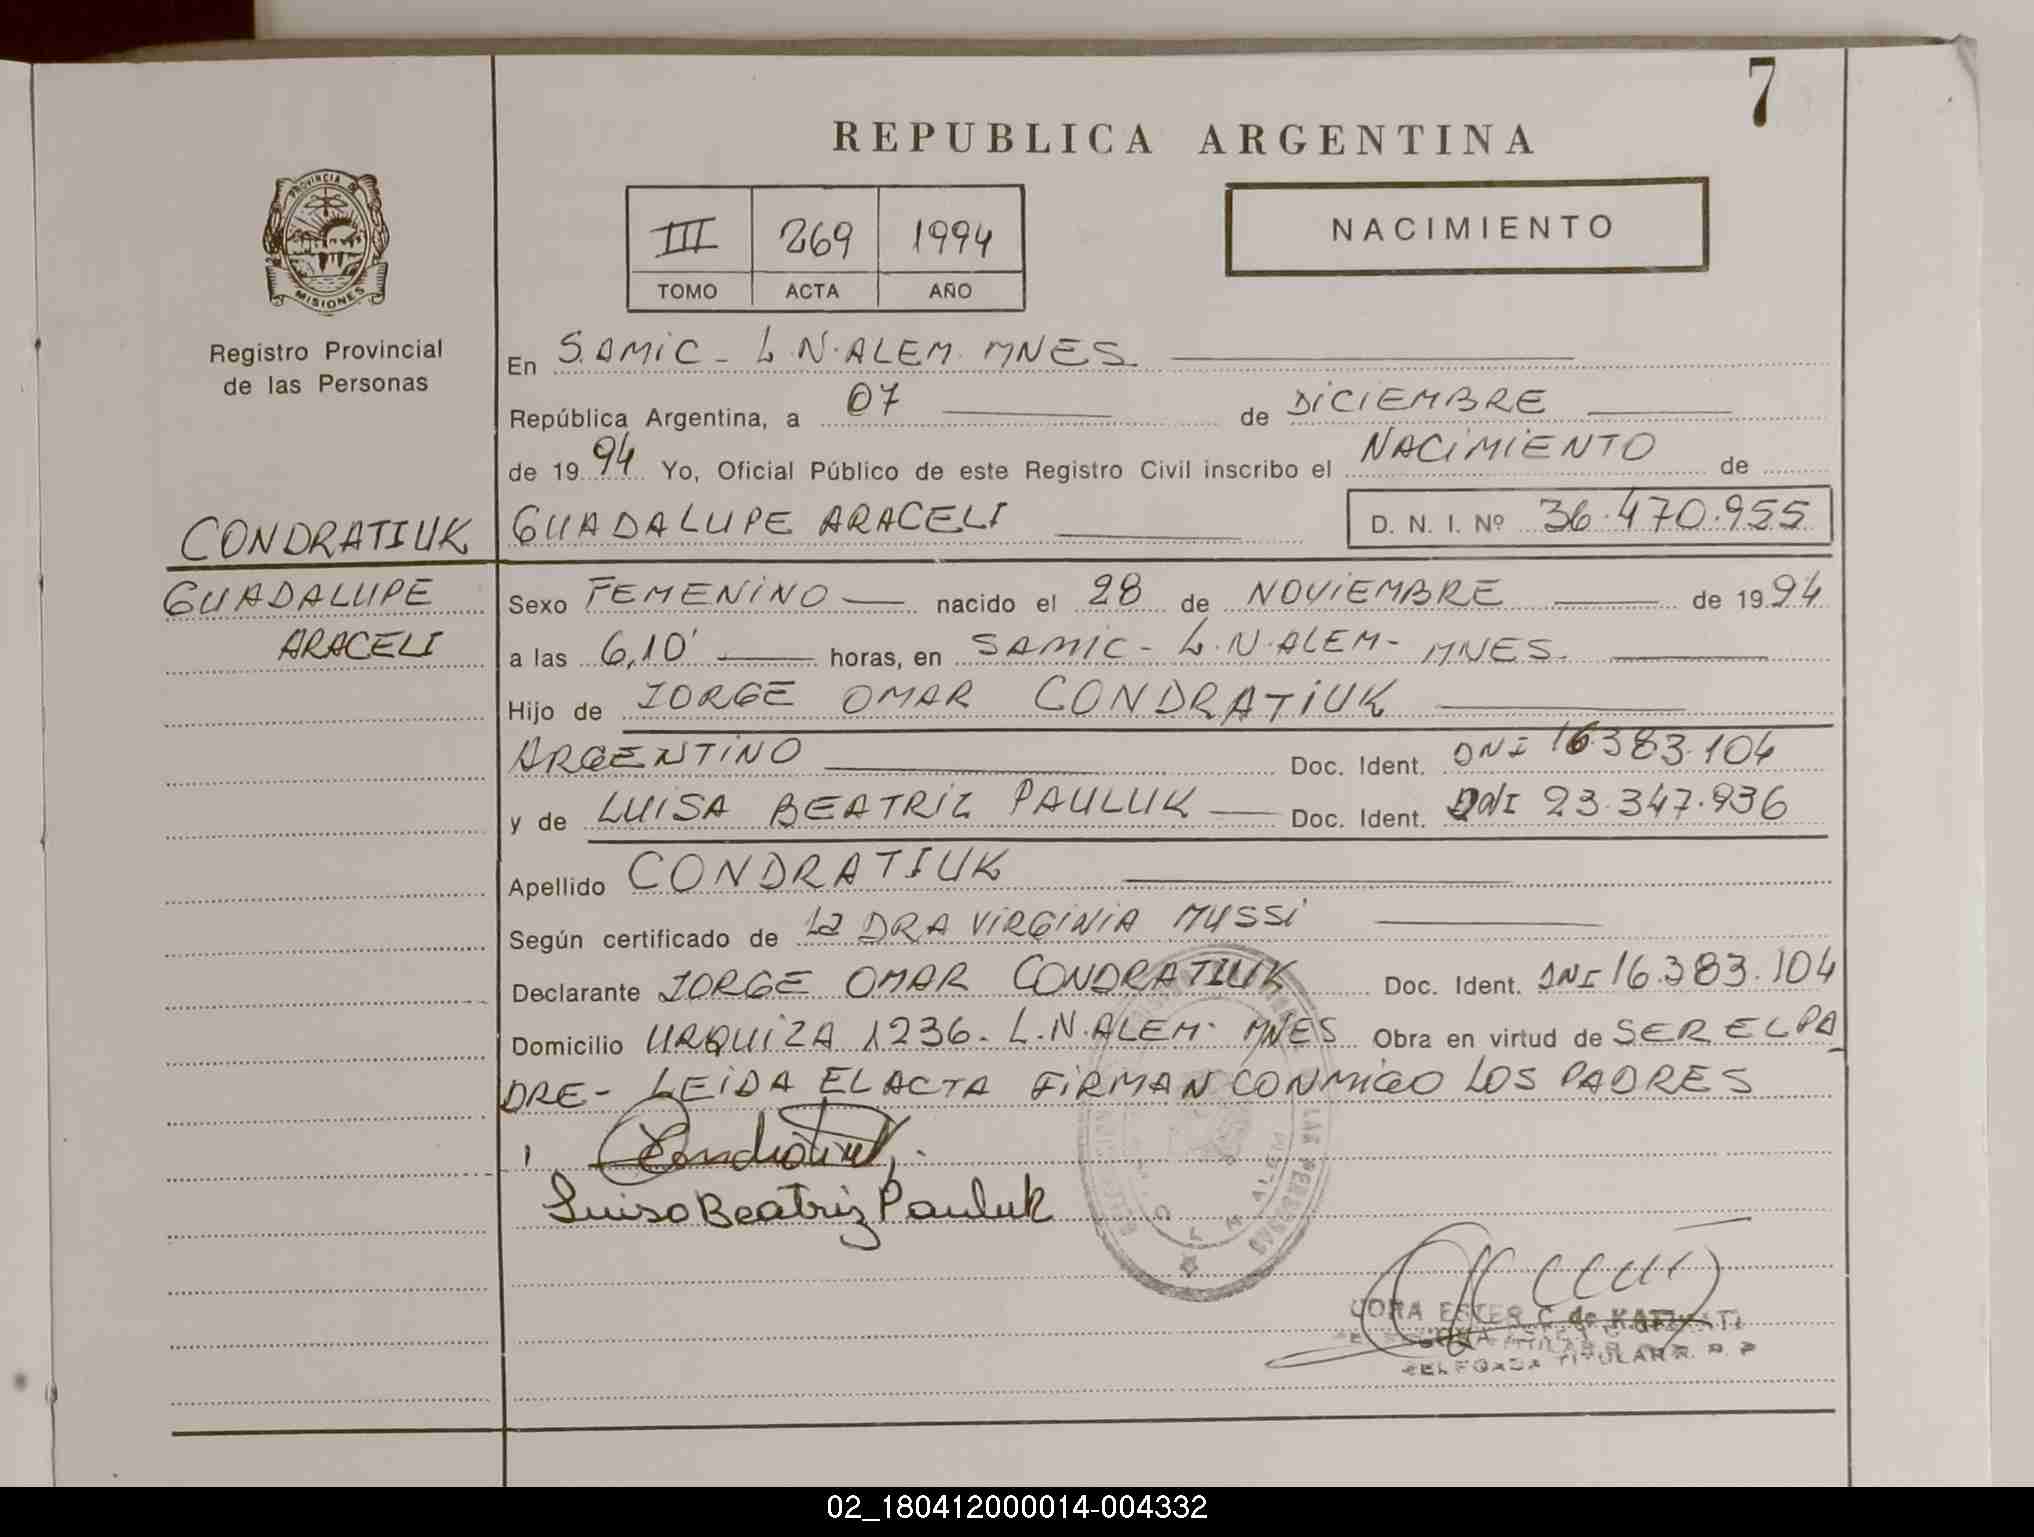 7
REPUBLICA ARGENTINA
PROVINCIA DE
MISIONES
III 269 1994
TOMO ACTA AÑO
NACIMIENTO
Registro Provincial
de las Personas
En SAMIC - L.N.ALEM. MNES
República Argentina, a 07 de DICIEMBRE
de 1994 Yo, Oficial Público de este Registro Civil inscribo el NACIMIENTO de
CONDRATIUK GUADALUPE ARACELI D. N. I. Nº 36.470.955
GUADALUPE Sexo FEMENINO nacido el 28 de NOVIEMBRE de 1994
ARACELI a las 6,10' horas, en SAMIC - L.N.ALEM - MNES.
Hijo de JORGE OMAR CONDRATIUK
ARGENTINO Doc. Ident. DNI 16.383.104
y de LUISA BEATRIZ PAULUK Doc. Ident. DNI 23.347.936
Apellido CONDRATIUK
Según certificado de La DRA VIRGINIA MUSSI
Declarante JORGE OMAR CONDRATIUK Doc. Ident. DNI 16.383.104
Domicilio URQUIZA 1236. L.N.ALEM. MNES Obra en virtud de SER EL PA
DRE - LEIDA EL ACTA FIRMAN CONMIGO LOS PADRES
Condratiuk
Luisa Beatriz Pauluk
LAS PERSONAS
ALEM
ESTER C de
TITULAR R. P. P
02_180412000014-004332